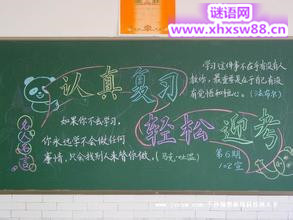 谜语网
www.xhxsw88.cn
认真复习
轻松迎考
名人名言
学习这件事不在乎有没有人
教你,最重要是在于自己有没
有觉悟和恒心。(法布尔)
如果你不去学习,
你永远学不会做任何
事情,只会找到人来替你做。(马克·吐温)
第6期